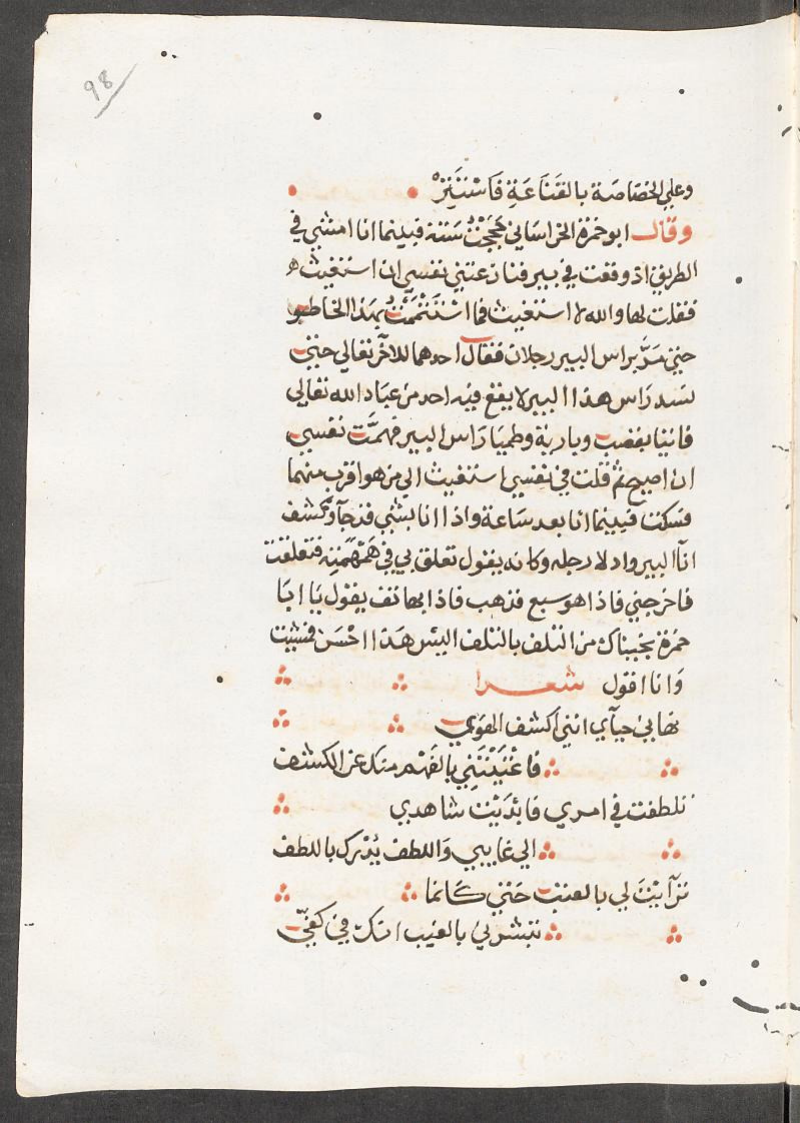 98
وعلي الخصاصة بالقَناعَةِ فَاسْتَتِرْ
وقال ابو حمزة الخراساني حججْتُ سَنَة فبينما انا امشي في
الطريق اذ وقعت في بير فنازعتني نفسي ان استغيث
فقلت لها والله لا استغيث فما اسْتَتْمَمْتُ بهذا الخاطر
حتي مَرَّ براس البير رجلان فقال احدهما للاخر تعالي حتي
نسد رَاس هذا البير لا يقع فيه احد من عباد الله تعالي
فاتيا بقصب وبارية وطميا رَاس البير فهمَّت نفسي
ان اصيح ثم قلت في نفسي استغيث الي من هو اقرب منهما
فسكت فبينما انا بعد سَاعة واذا انا بشي قد جآ وكشف
انآ البير وادلا رجله وكانه يقول تعلق بي في هَمْهَمَتِه فتعلقت
فاخرجني فاذا هو سبع فذهب فاذا بهاتف يقول يَا ابَا
حمزة نجيناك من التلف بالتلف اليس هَذا احْسَن فمشيت
وَانا اقول شعرا
نهَاني حيآي انني اكشف الهوي
فاغْنَيْتَنِي بالفَهْم منك عن الكشف
تلطفت في امري فابْدَيْت شاهدي
الي غايبي وَاللطف يُدْرك باللطف
ترآيْتَ لي بالعيب حَتي كَانما
تبشرني بالعيب انك في كفيّ